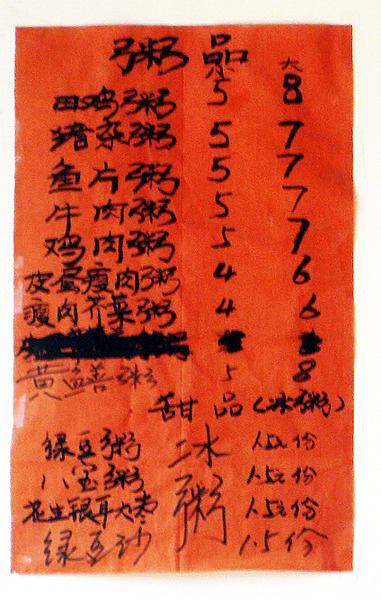 粥 品 大
田鸡粥 5 8
猪杂粥 5 7
鱼片粥 5 7
牛肉粥 5 7
鸡肉粥 5 7
皮蛋瘦肉粥 4 6
瘦肉芥菜粥 4 6
黄鳝粥 5 8
甜 品 (冰粥)
绿豆粥 1.5元份
八宝粥 1.5元份
花生银耳大枣 1.5元份
绿豆沙 1.5份
冰粥